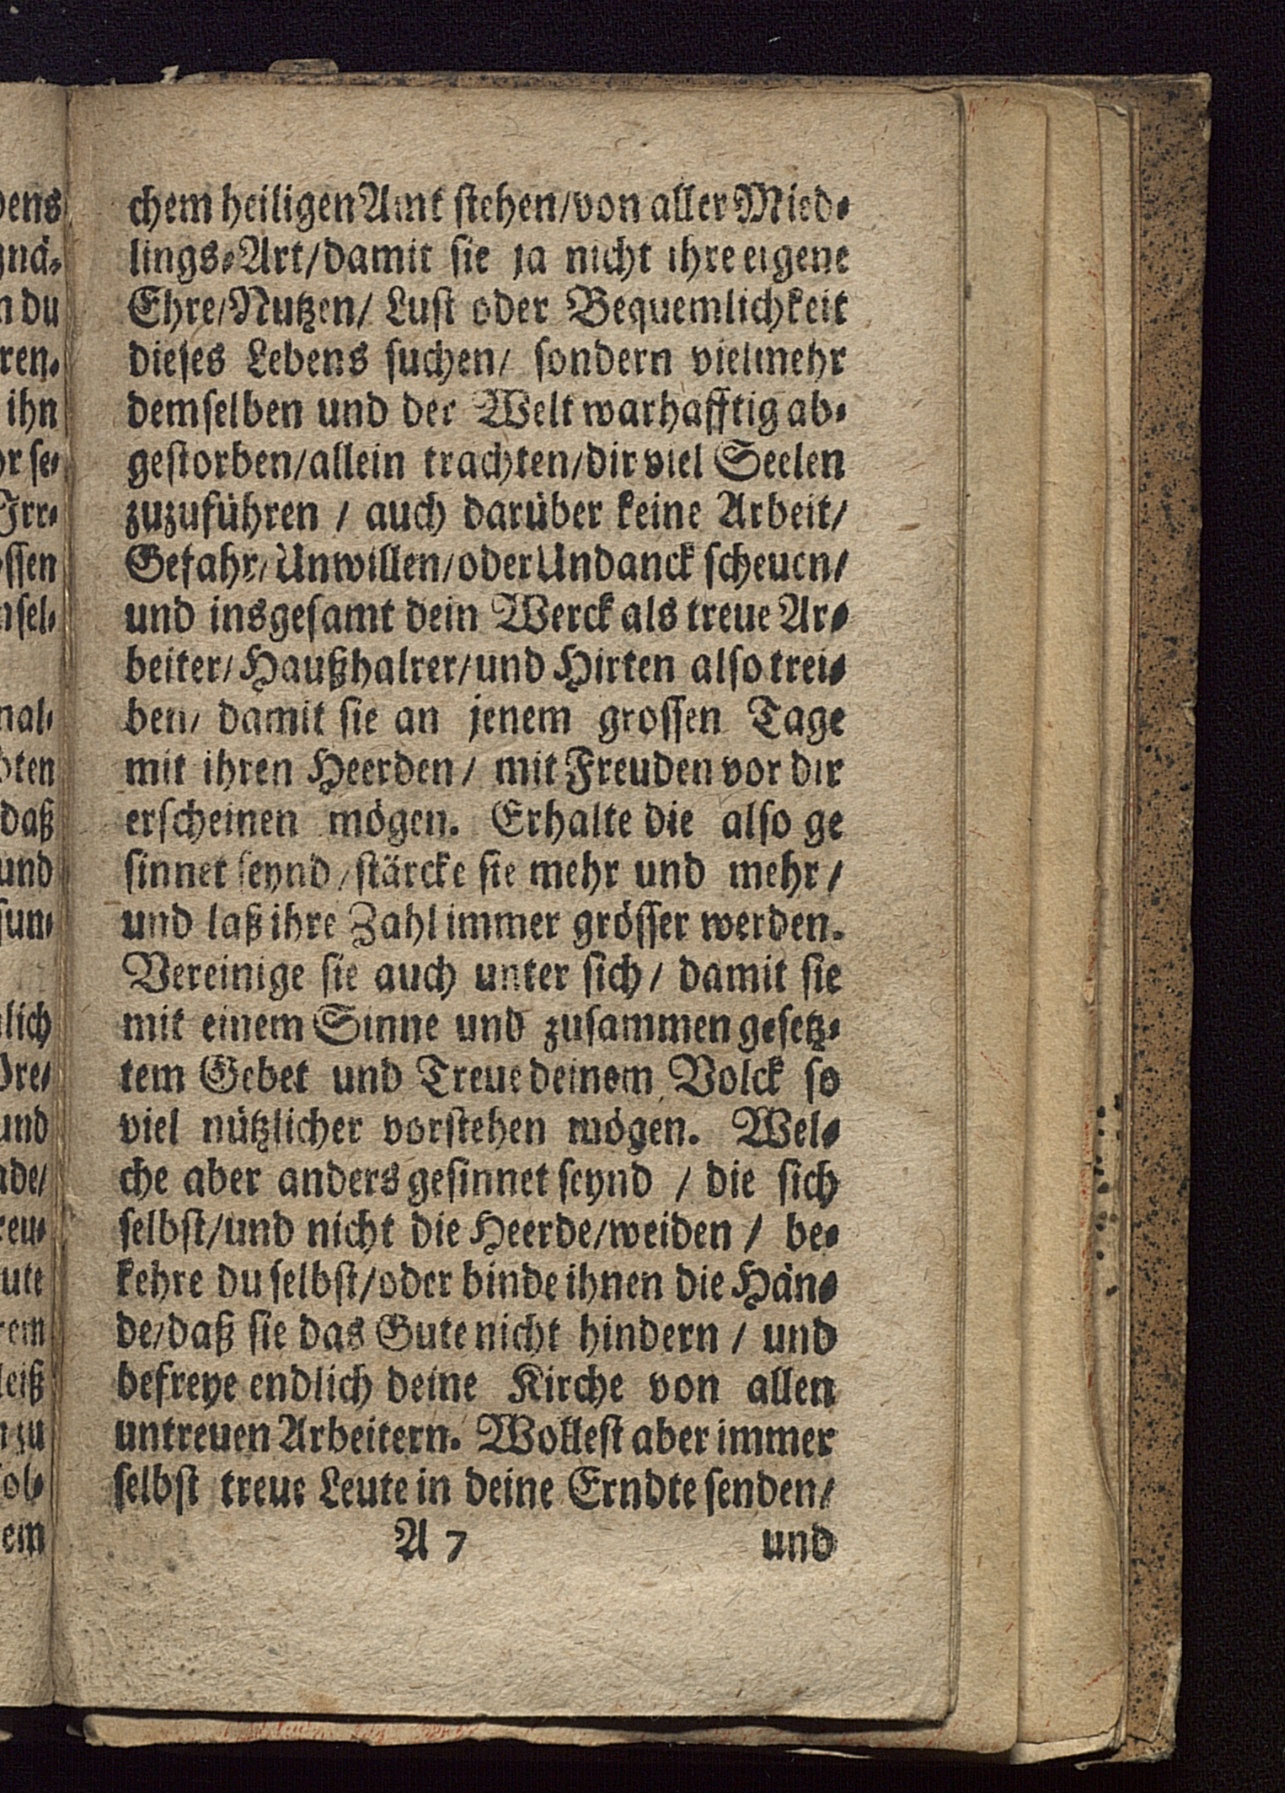 chem heiligen Amt stehen/von aller Mied-
lings-Art/damit sie ja nicht ihre eigene
Ehre/Nutzen/ Lust oder Bequemlichkeit
dieses Lebens suchen/ sondern vielmehr
demselben und der Welt warhafftig ab-
gestorben/allein trachten/dir viel Seelen
zuzuführen / auch darüber keine Arbeit/
Gefahr/Unwillen/oder Undanck scheuen/
und insgesamt dein Werck als treue Ar-
beiter/Haußhalrer/und Hirten also trei-
ben/ damit sie an jenem grossen Tage
mit ihren Heerden/ mit Freuden vor dir
erscheinen mögen. Erhalte die also ge
sinnet seynd/stärcke sie mehr und mehr/
und laß ihre Zahl immer grösser werden.
Vereinige sie auch unter sich/ damit sie
mit einem Sinne und zusammen gesetz-
tem Gebet und Treue deinem Volck so
viel nützlicher vorstehen mögen. Wel-
che aber anders gesinnet seynd / die sich
selbst/und nicht die Heerde/weiden / be-
kehre du selbst/oder binde ihnen die Hän-
de/daß sie das Gute nicht hindern / und
befreye endlich deine Kirche von allen
untreuen Arbeitern. Wollest aber immer
selbst treue Leute in deine Erndte senden/
A 7 und